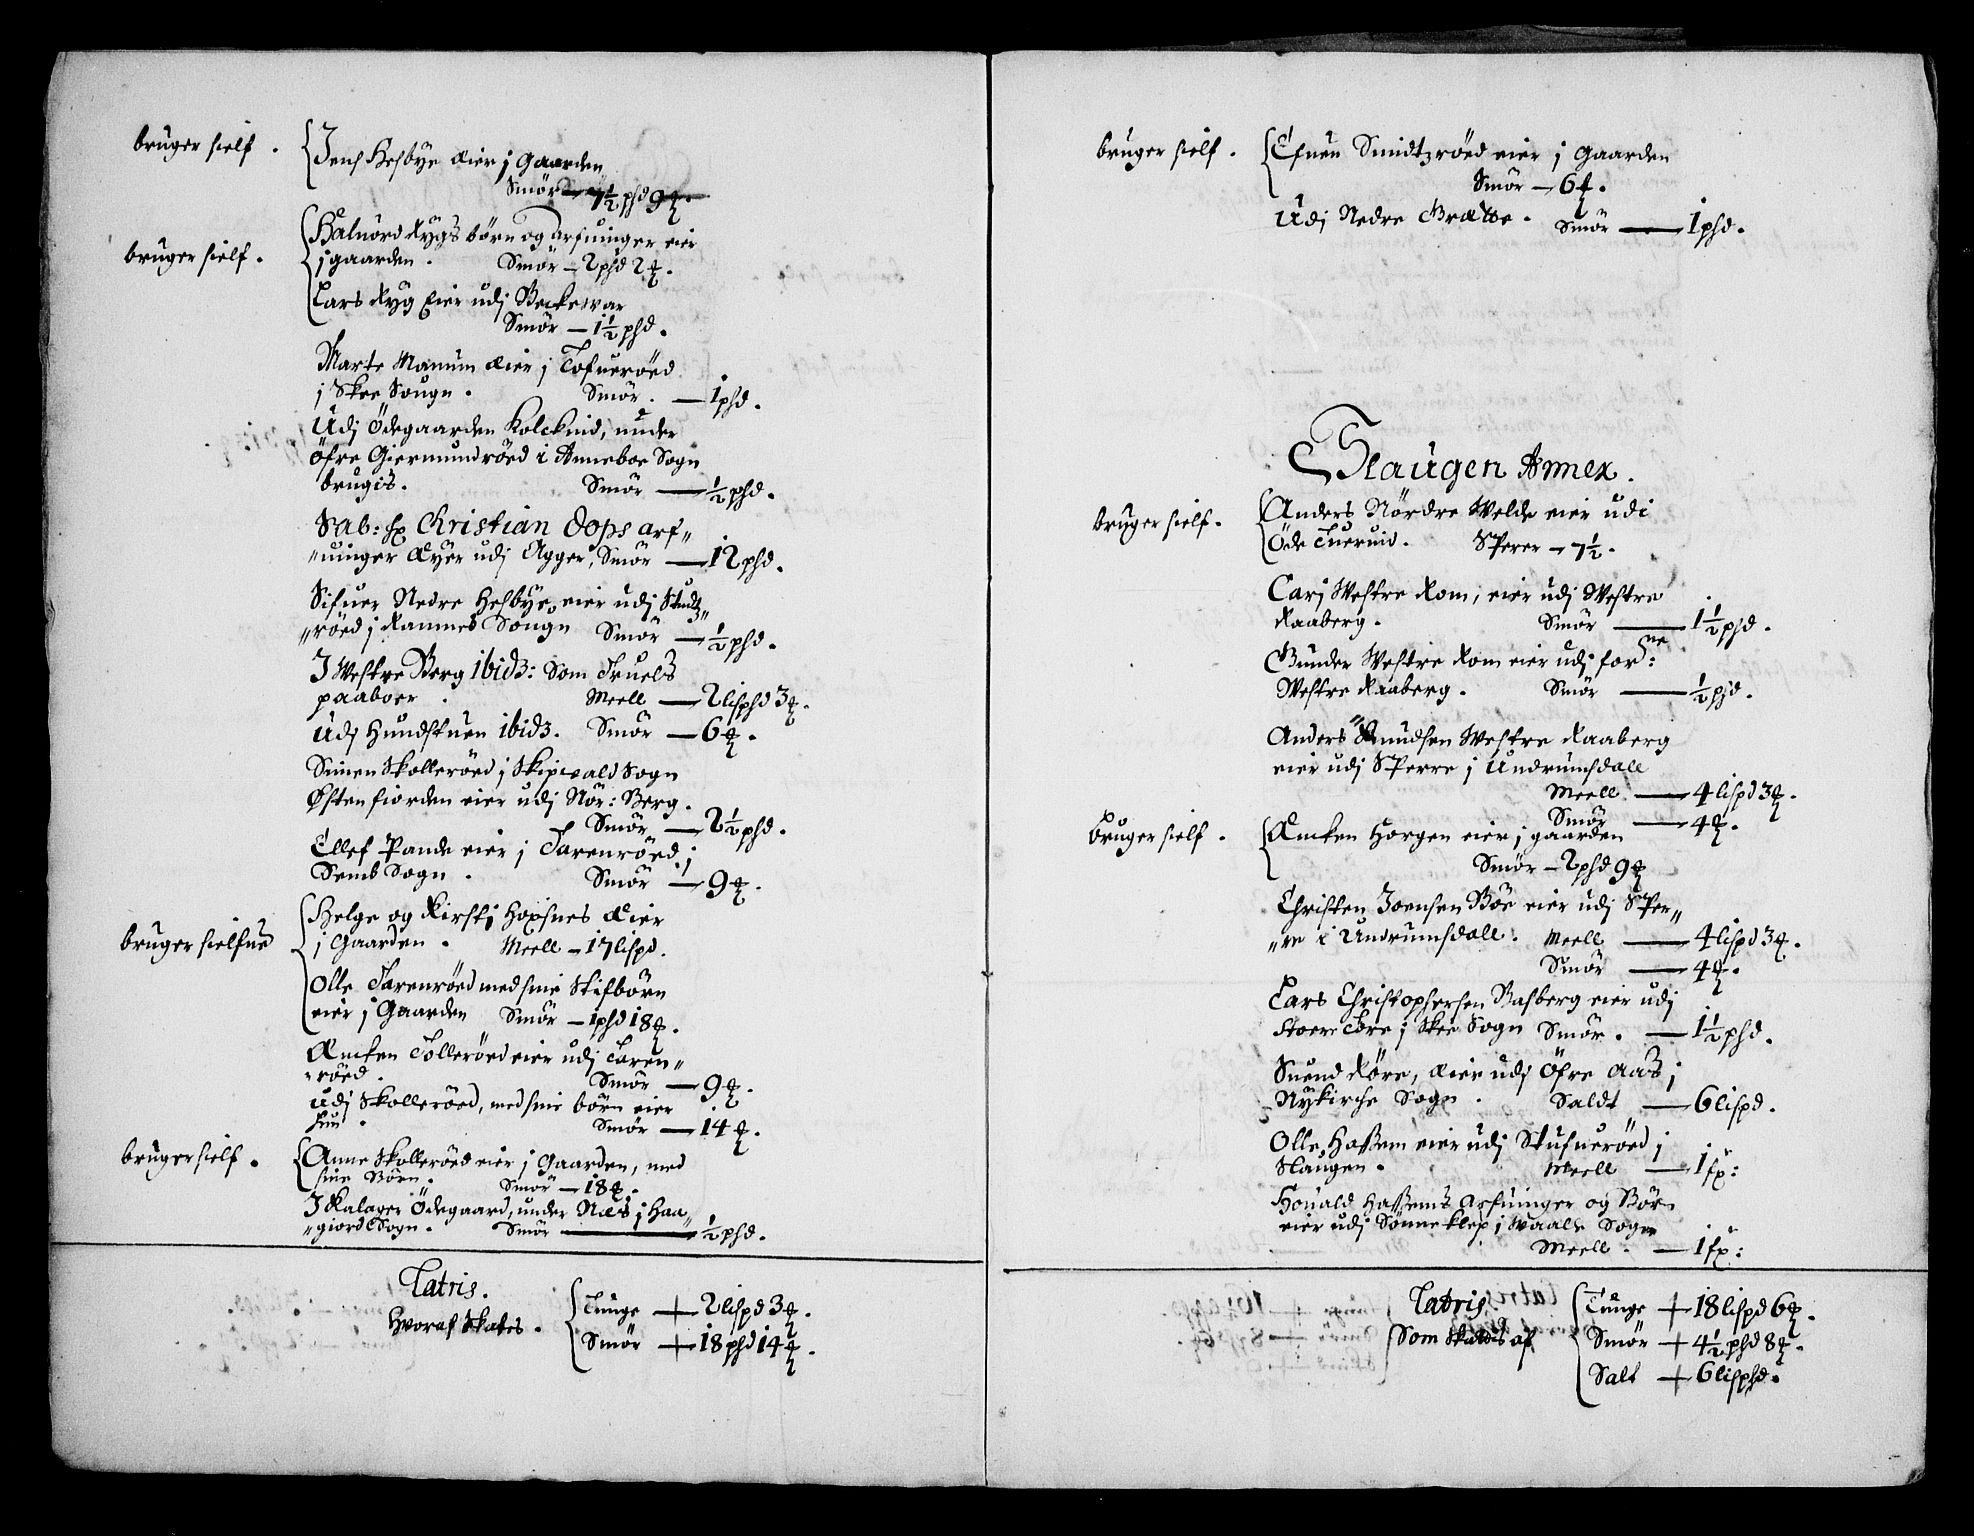 bruger sielf.
Jens Hesbye Æier j Gaarden
Smör — 7½ phd 9 ℔.
bruger sielf.
Halnörd Rygs börn og arfuinger eier
j gaarden. Smör — 2 phd 2 ℔.
Lars Ryg Eier udj Beckewar
Smör — 1½ phd.
Marte Manum Æier j Tofueröed
j Skee Sougn. Smör. — 1 phd.
Udj Ödegaarden Kolckind, under
öfre Giermundröed i Anneboe Sogn
brugis. Smör — ½ phd.
Sab: hr Christian Oops arf„
„uinger Æyer udj Agger, Smör — 12 phd.
Sifuer Nedre Hesbye, eier udj Studtz„
„röed j Ramnes Sougn Smör — ½ phd.
J Westre Berg ibid3: Som Truels
paaboer. Meell — 2 lisphd 3 ℔.
Udj Hundstuen ibid3. Smör — 6 ℔.
Simen Skolleröed j Skipwald Sogn
Østenfiorden eier udj Nör: Berg.
Smör — 2½ phd.
Ellef Pande eier j Tarenröed j
Semb Sogn. Smör — 9 ℔.
bruger sielfue
Helge og Kirstj Hoxsnes Æier
j Gaarden. Meell — 17 lispd.
Olle Tarenröed med sine Stifbörn
eier j Gaarden Smör — 1 phd 18 ℔.
Æncken Tolleröed eier udj Taren„
„röed. Smör — 9 ℔.
Udj Skolleröed, med sine börn eier
hun. Smör — 14 ℔.
bruger sielf.
Anne Skolleröed eier j Gaarden, med
sine Börn. Smör — 18 ℔.
J Kalager Ödegaard, under Næs j Haa„
„giord Sogn. Smör — ½ phd.
Latris.
Hvoraf Skates.
Tunge + 2 lispd 3 ℔.
Smör + 18 phd 14 ℔.
bruger sielf.
Efuen Smidtzröed eier j Gaarden
Smör — 6 ℔.
Udj Nedre Græwe. Smör — 1 phd.
Slaugen Annex.
bruger sielf.
Anders Nördre Welde eier udi
Öde Tueruid. Sperer — 7½.
Carj Westre Rom, eier udj Westre
Raaberg. Smör — 1½ phd.
Gunder Westre Rom eier udj forne:
Westre Raaberg. Smör — ½ phd.
Anders Knudsen Westre Raaberg
eier udj Sperre j Undrumsdall
Meell — 4 lispd 3 ℔.
Smör — 4 ℔.
bruger sielf.
Æncken Horgen eier j gaarden
Smör — 2 phd 9 ℔
Christen Joensen Böe eier udj Sper„
„re i Undrumsdall. Meell — 4 lispd 3 ℔.
Smör — 4 ℔.
Lars Christophersen Basberg eier udj
Stoere Fore j Skee Sogn Smör. — 1½ phd.
Suend Röre, Æier udj Öfre Aas j
Nykirche Sogn. Saldt — 6 lispd.
Olle Hassem eier udj Stufueröed j
Slaugen. Meell — 1 fx:
Houald Hassems Arfuinger og Bör
eier udj Sönne Klep j Waale Sogn
Meell. — 1 fx:
Latris
Som Skatts af
Tunge + 18 lispd 6 ℔.
Smör + 4½ phd 8 ℔.
Salt + 6 lisphd.